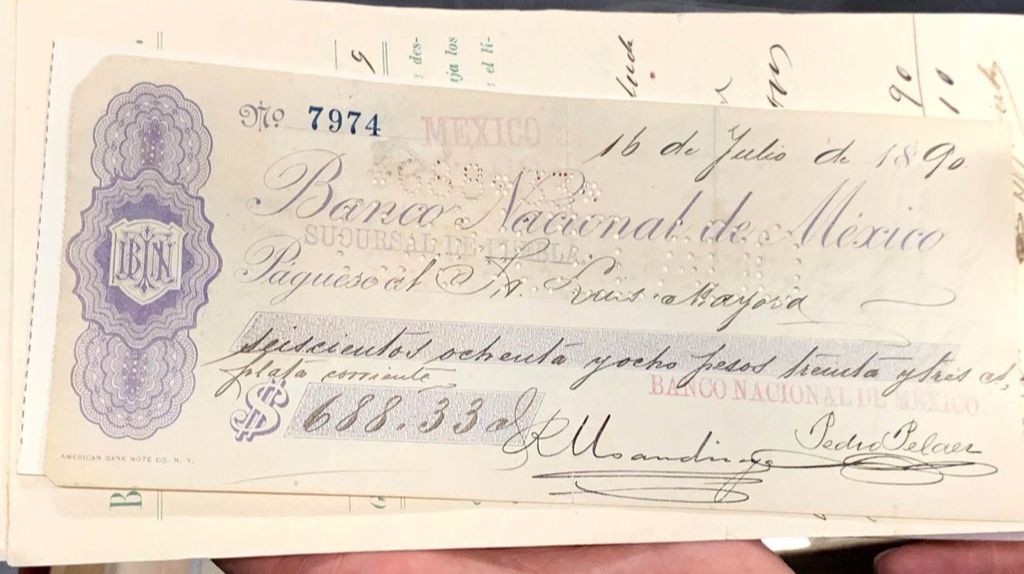 No 7974
MEXICO
16 de Julio de 1890
Banco Nacional de México
SUCURSAL DE PUEBLA.
Páguese al Sr. Luis Mayora
seiscientos ochenta y ocho pesos treinta y tres cs,
plata corriente
BANCO NACIONAL DE MEXICO
$ 688.33
Pedro Pelaez
AMERICAN BANK NOTE CO. N. Y.
BNM
des-
ja los
el li-
90
10